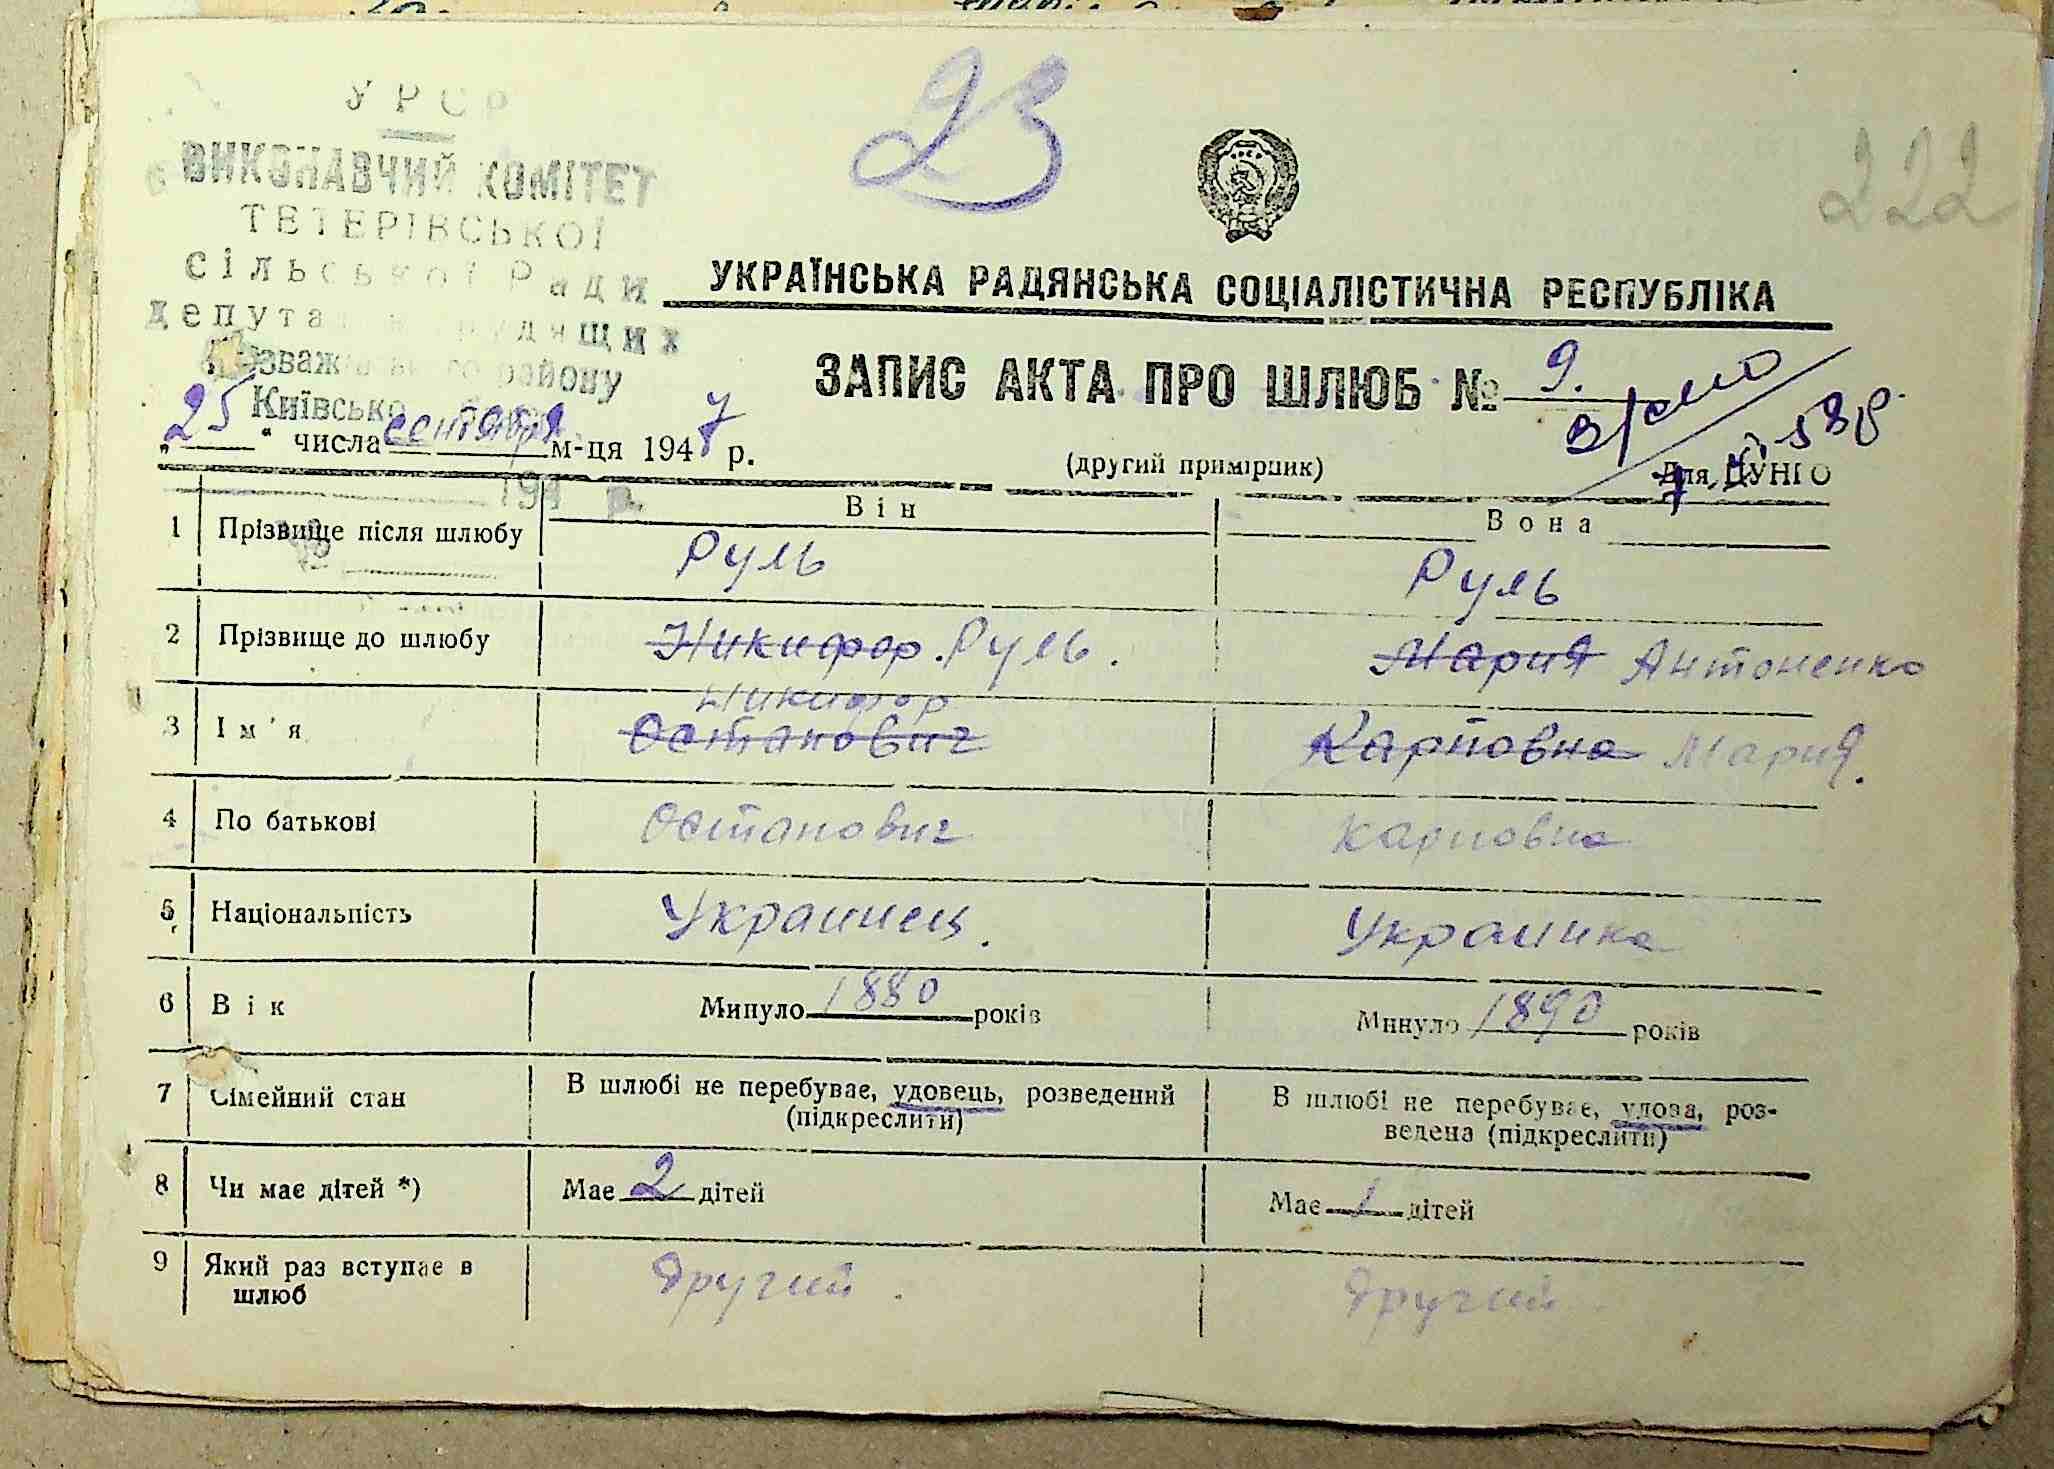 23
222
УРСР
ВИКОНАВЧИЙ КОМІТЕТ
ТЕТЕРІВСЬКОЇ
сільської Ради
депутатів трудящих
району
Київсько
УКРАЇНСЬКА РАДЯНСЬКА СОЦІАЛІСТИЧНА РЕСПУБЛІКА
ЗАПИС АКТА ПРО ШЛЮБ № 9.
„25“ числа сентября м-ця 1947 р.
(другий примірник)
Для ЦУНГО
194 р.
Він Вона
1 Прізвище після шлюбу Руль Руль
2 Прізвище до шлюбу Никифор. Руль. Мария Антоненко
Никифор
3 Ім'я Остапович Карповна Мария.
4 По батькові Остапович Карповна
5 Національність Украинец. Украинка
6 Вік Минуло 1880 років Минуло 1890 років
7 Сімейний стан В шлюбі не перебуває, удовець, розведений В шлюбі не перебуває, удова, роз-
(підкреслити) ведена (підкреслити)
8 Чи має дітей *) Має 2 дітей Має 1 дітей
9 Який раз вступає в Другий. Другий
шлюб